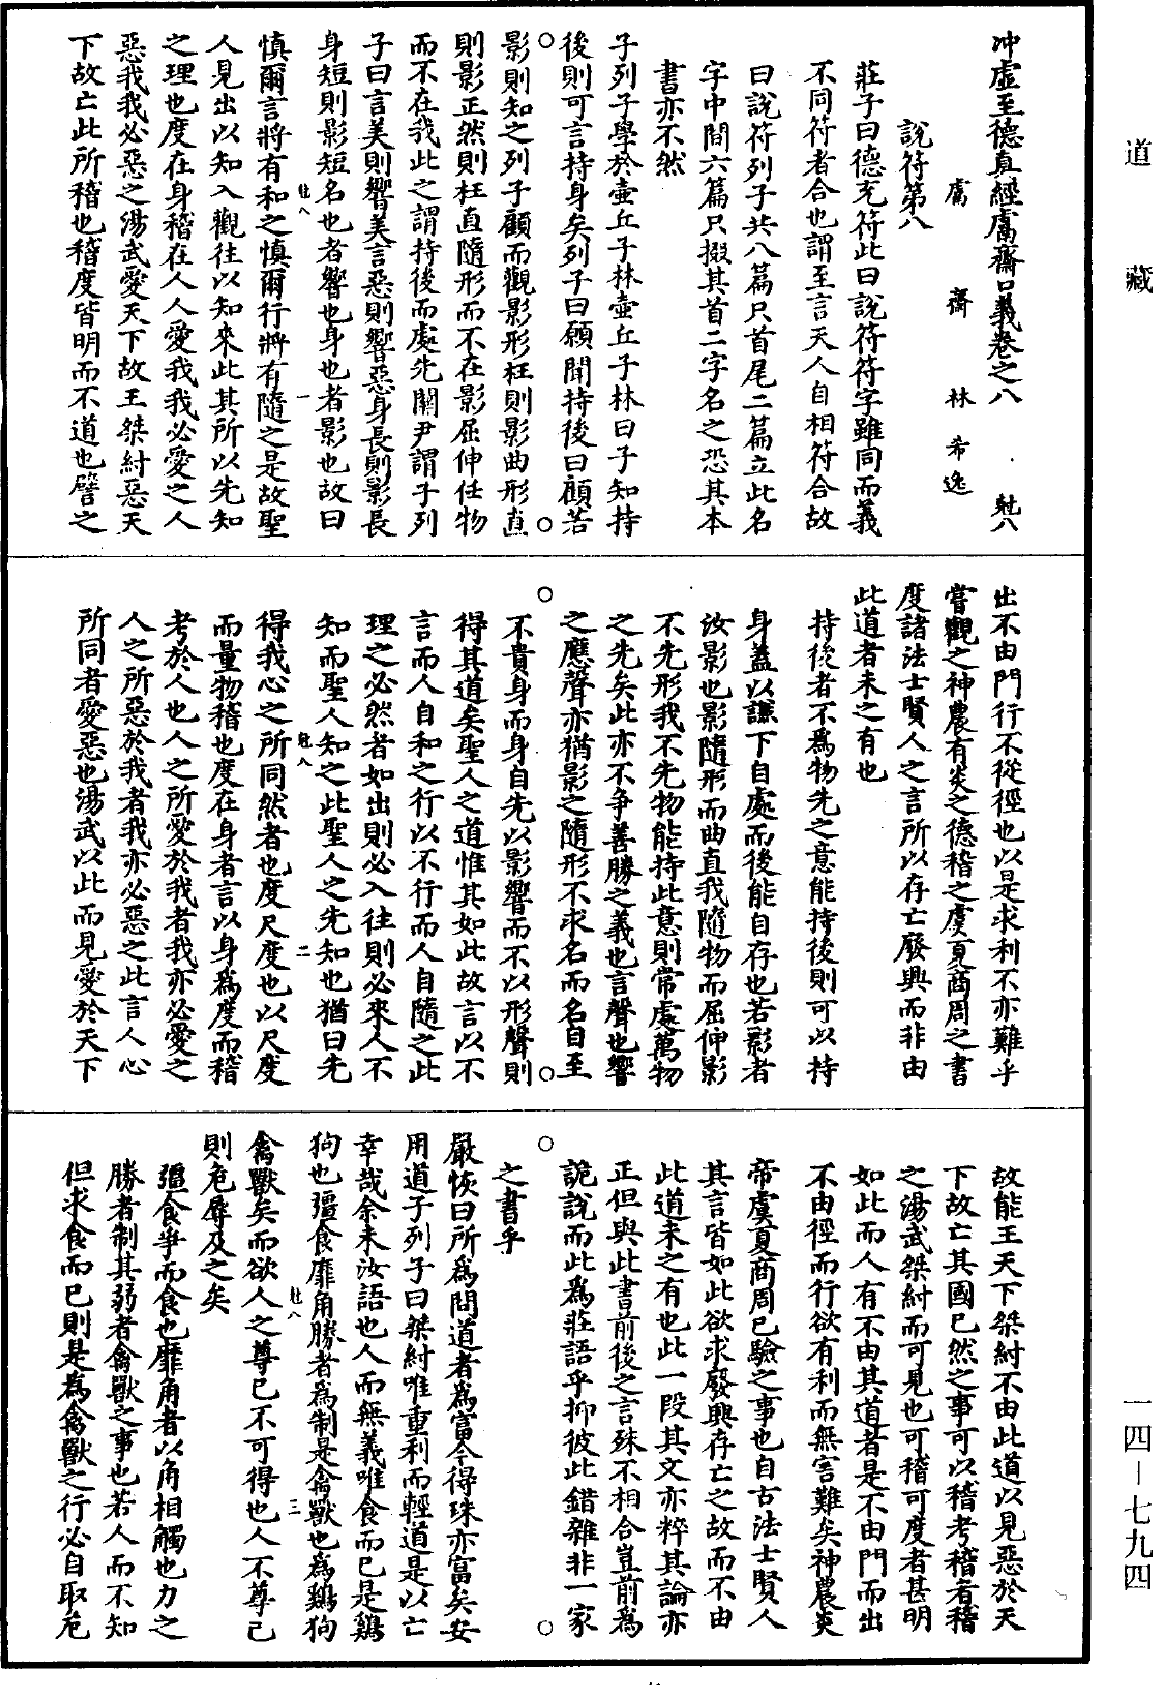 道藏
冲虛至德真經鬳齋口義卷之八 尅八
鬳齋林希逸
說符第八
莊子曰德充符此曰說符符字雖同而義
不同符者合也謂至言天人自相符合故
曰說符列子共八篇只首尾二篇立此名
字中間六篇只掇其首二字名之恐其本
書亦不然
子列子學於壺丘子林壺丘子林曰子知持
後則可言持身矣列子曰願聞持後曰顧若
影則知之列子顧而觀影形枉則影曲形直
則影正然則枉直隨形而不在影屈伸任物
而不在我此之謂持後而處先關尹謂子列
子曰言美則響美言惡則響惡身長則影長
身短則影短名也者響也身也者影也故曰
尅八 一
慎爾言將有和之慎爾行將有隨之是故聖
人見出以知入觀往以知來此其所以先知
之理也度在身稽在人人愛我我必愛之人
惡我我必惡之湯武愛天下故王桀紂惡天
下故亡此所稽也稽度皆明而不道也譬之
出不由門行不從徑也以是求利不亦難乎
嘗觀之神農有炎之德稽之虞夏商周之書
度諸法士賢人之言所以存亡廢興而非由
此道者未之有也
持後者不爲物先之意能持後則可以持
身蓋以謙下自處而後能自存也若影者
汝影也影隨形而曲直我隨物而屈伸影
不先形我不先物能持此意則常處萬物
之先矣此亦不爭善勝之義也言聲也響
之應聲亦猶影之隨形不求名而名自至
不貴身而身自先以影響而不以形聲則
得其道矣聖人之道惟其如此故言以不
言而人自和之行以不行而人自隨之此
理之必然者如出則必入往則必來人不
知而聖人知之此聖人之先知也猶曰先
尅八 二
得我心之所同然者也度尺度也以尺度
而量物稽也度在身者言以身爲度而稽
考於人也人之所愛於我者我亦必愛之
人之所惡於我者我亦必惡之此言人心
所同者愛惡也湯武以此而見愛於天下
故能王天下桀紂不由此道以見惡於天
下故亡其國已然之事可以稽考稽者稽
之湯武桀紂而可見也可稽可度者甚明
如此而人有不由其道者是不由門而出
不由徑而行欲有利而無害難矣神農炎
帝虞夏商周已驗之事也自古法士賢人
其言皆如此欲求廢興存亡之故而不由
此道未之有也此一段其文亦粹其論亦
正但與此書前後之言殊不相合豈前爲
詭說而此爲莊語乎抑彼此錯雜非一家
之書乎
嚴恢曰所爲問道者爲富今得珠亦富矣安
用道子列子曰桀紂唯重利而輕道是以亡
幸哉余未汝語也人而無義唯食而已是鷄
狗也彊食靡角勝者爲制是禽獸也爲鷄狗
尅八 三
禽獸矣而欲人之尊己不可得也人不尊己
則危辱及之矣
彊食爭而食也靡角者以角相觸也力之
勝者制其弱者禽獸之事也若人而不知
但求食而已則是爲禽獸之行必自取危
一四—七九四